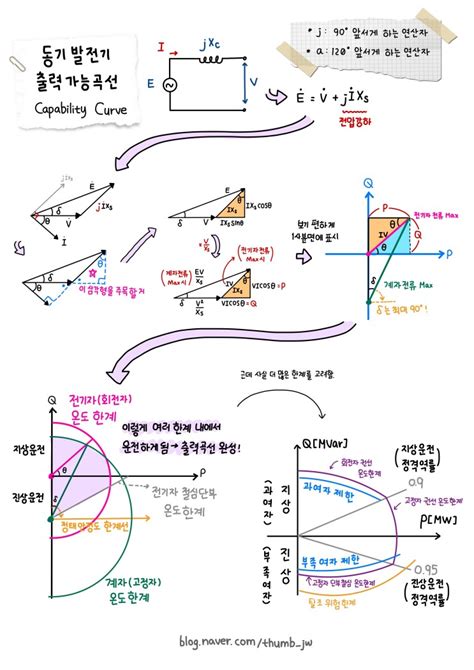 동기 발전기
출력 가능 곡선
Capability Curve
jXc
I
E
V
• j : 90° 앞서게 하는 연산자
• a : 120° 앞서게 하는 연산자
Ė = V̇ + jİXs
전압강하
jİXs
Ė
jIXs
δ
θ
V̇
İ
θ
IXscosθ
IXs
δ
V
IXssinθ
δ
θ
이 삼각형을 주목할 거
×V/Xs
(전기자 전류) Max시
(계자전류) Max시
EV/Xs
VI
θ
VIcosθ = P
δ
V²/Xs
VIsinθ = Q
보기 편하게
1사분면에 표시
Q
P
전기자전류 Max
θ
IV
Q
P
δ
계자전류 Max
δ는 최대 90°!
근데 사실 더 많은 한계를 고려함.
Q
전기자(회전자)
온도 한계
이렇게 여러 한계 내에서
운전하게 됨 → 출력곡선 완성!
지상운전
θ
P
진상운전
δ
전기자 철심단부
온도한계
정태안정도 한계선
계자(고정자)
온도 한계
Q[MVar]
회전자 권선
온도한계
(지상운전 정격역률)
0.9
지상
(과여자)
과여자 제한
고정자 권선 온도한계
P[MW]
진상
(부족여자)
부족여자 제한
고정자 단부철심 온도한계
탈조 위험한계
0.95
(진상운전 정격역률)
blog.naver.com/thumb_jw